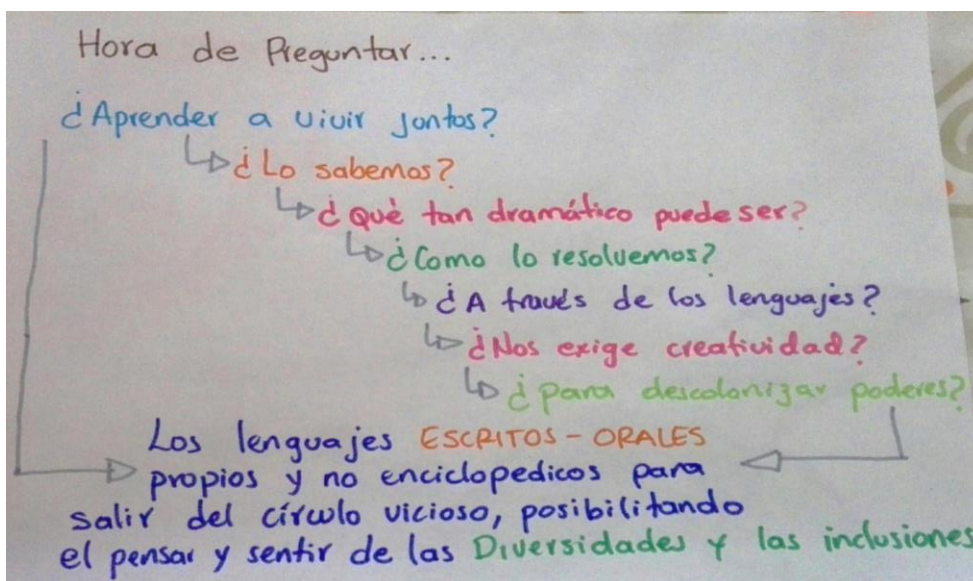 Hora de Preguntar...
¿Aprender a vivir juntos?
¿Lo sabemos?
¿Qué tan dramático puede ser?
¿Como lo resolvemos?
¿A través de los lenguajes?
¿Nos exige creatividad?
¿para descolonizar poderes?
Los lenguajes ESCRITOS - ORALES
propios y no enciclopedicos para
salir del círculo vicioso, posibilitando
el pensar y sentir de las Diversidades y las inclusiones